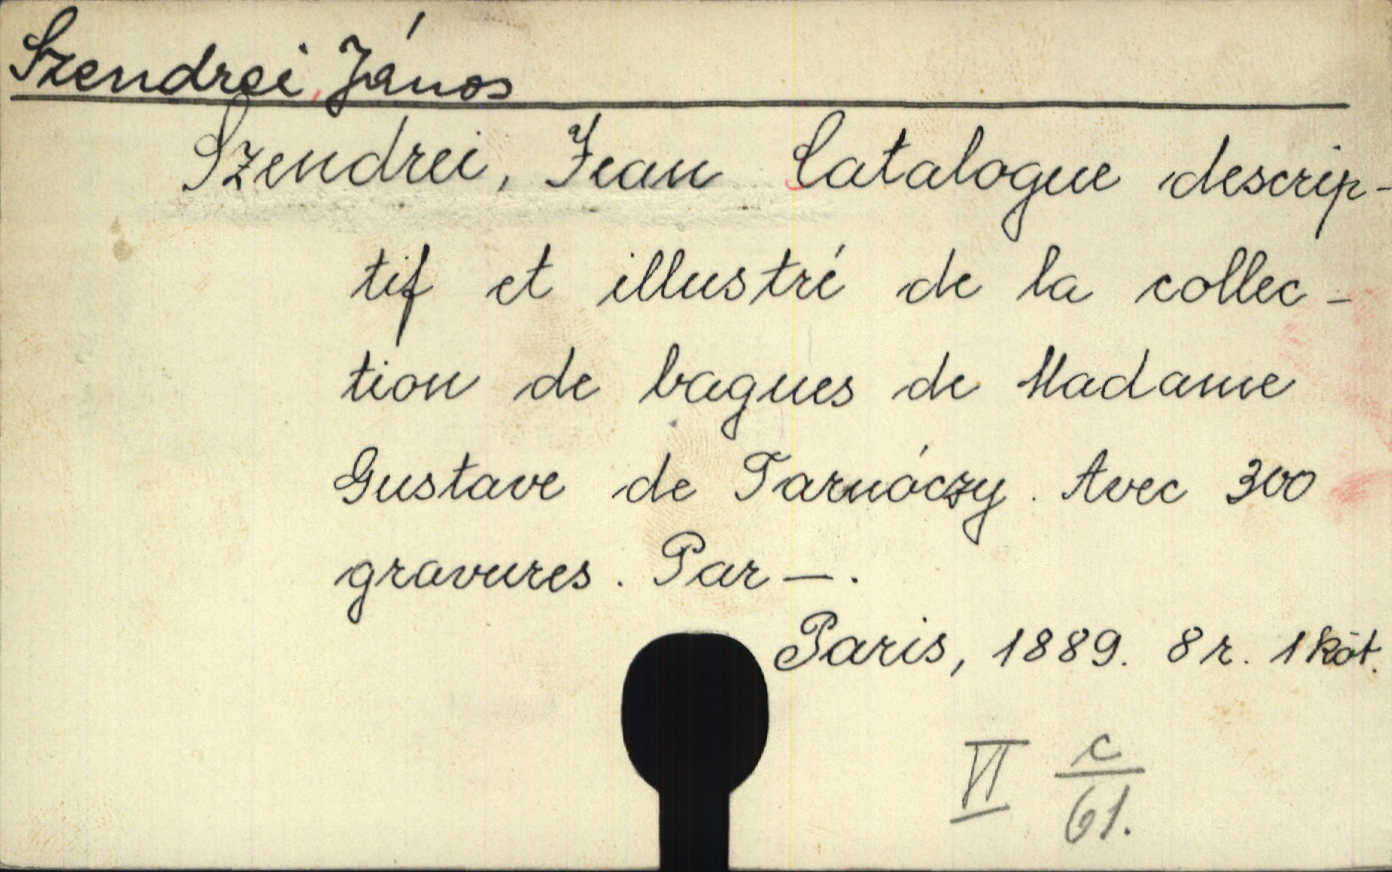 Szendrei, János
Szendrei, Jean Catalogue descrip-
tif et illustré de la collec-
tion de bagues de Madame
Gustave de Tarnóczy. Avec 300
gravures. Par —.
Paris, 1889. 8 r. 1 köt.
VI c/61.